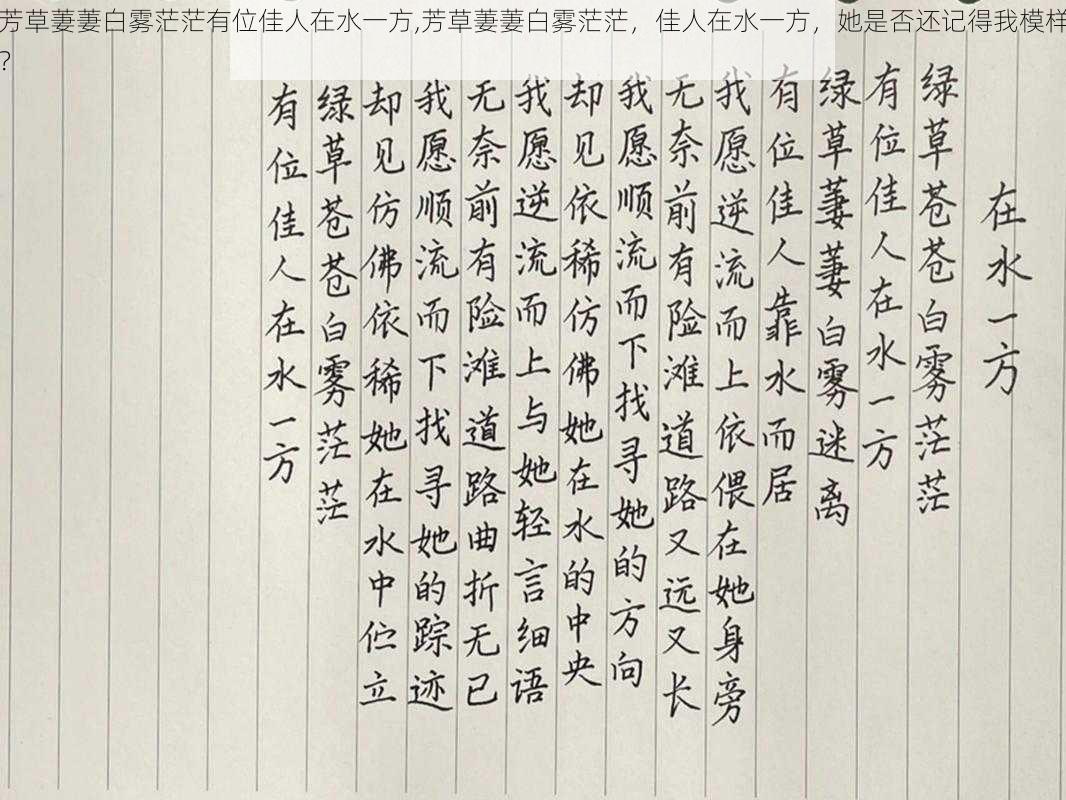 芳草萋萋白雾茫茫有位佳人在水一方,芳草萋萋白雾茫茫，佳人在水一方，她是否还记得我模样
?
在水一方
绿草苍苍白雾茫茫
有位佳人在水一方
绿草萋萋白雾迷离
有位佳人靠水而居
我愿逆流而上依偎在她身旁
无奈前有险滩道路又远又长
我愿顺流而下找寻她的方向
却见依稀仿佛她在水的中央
我愿逆流而上与她轻言细语
无奈前有险滩道路曲折无已
我愿顺流而下找寻她的踪迹
却见仿佛依稀她在水中伫立
绿草苍苍白雾茫茫
有位佳人在水一方